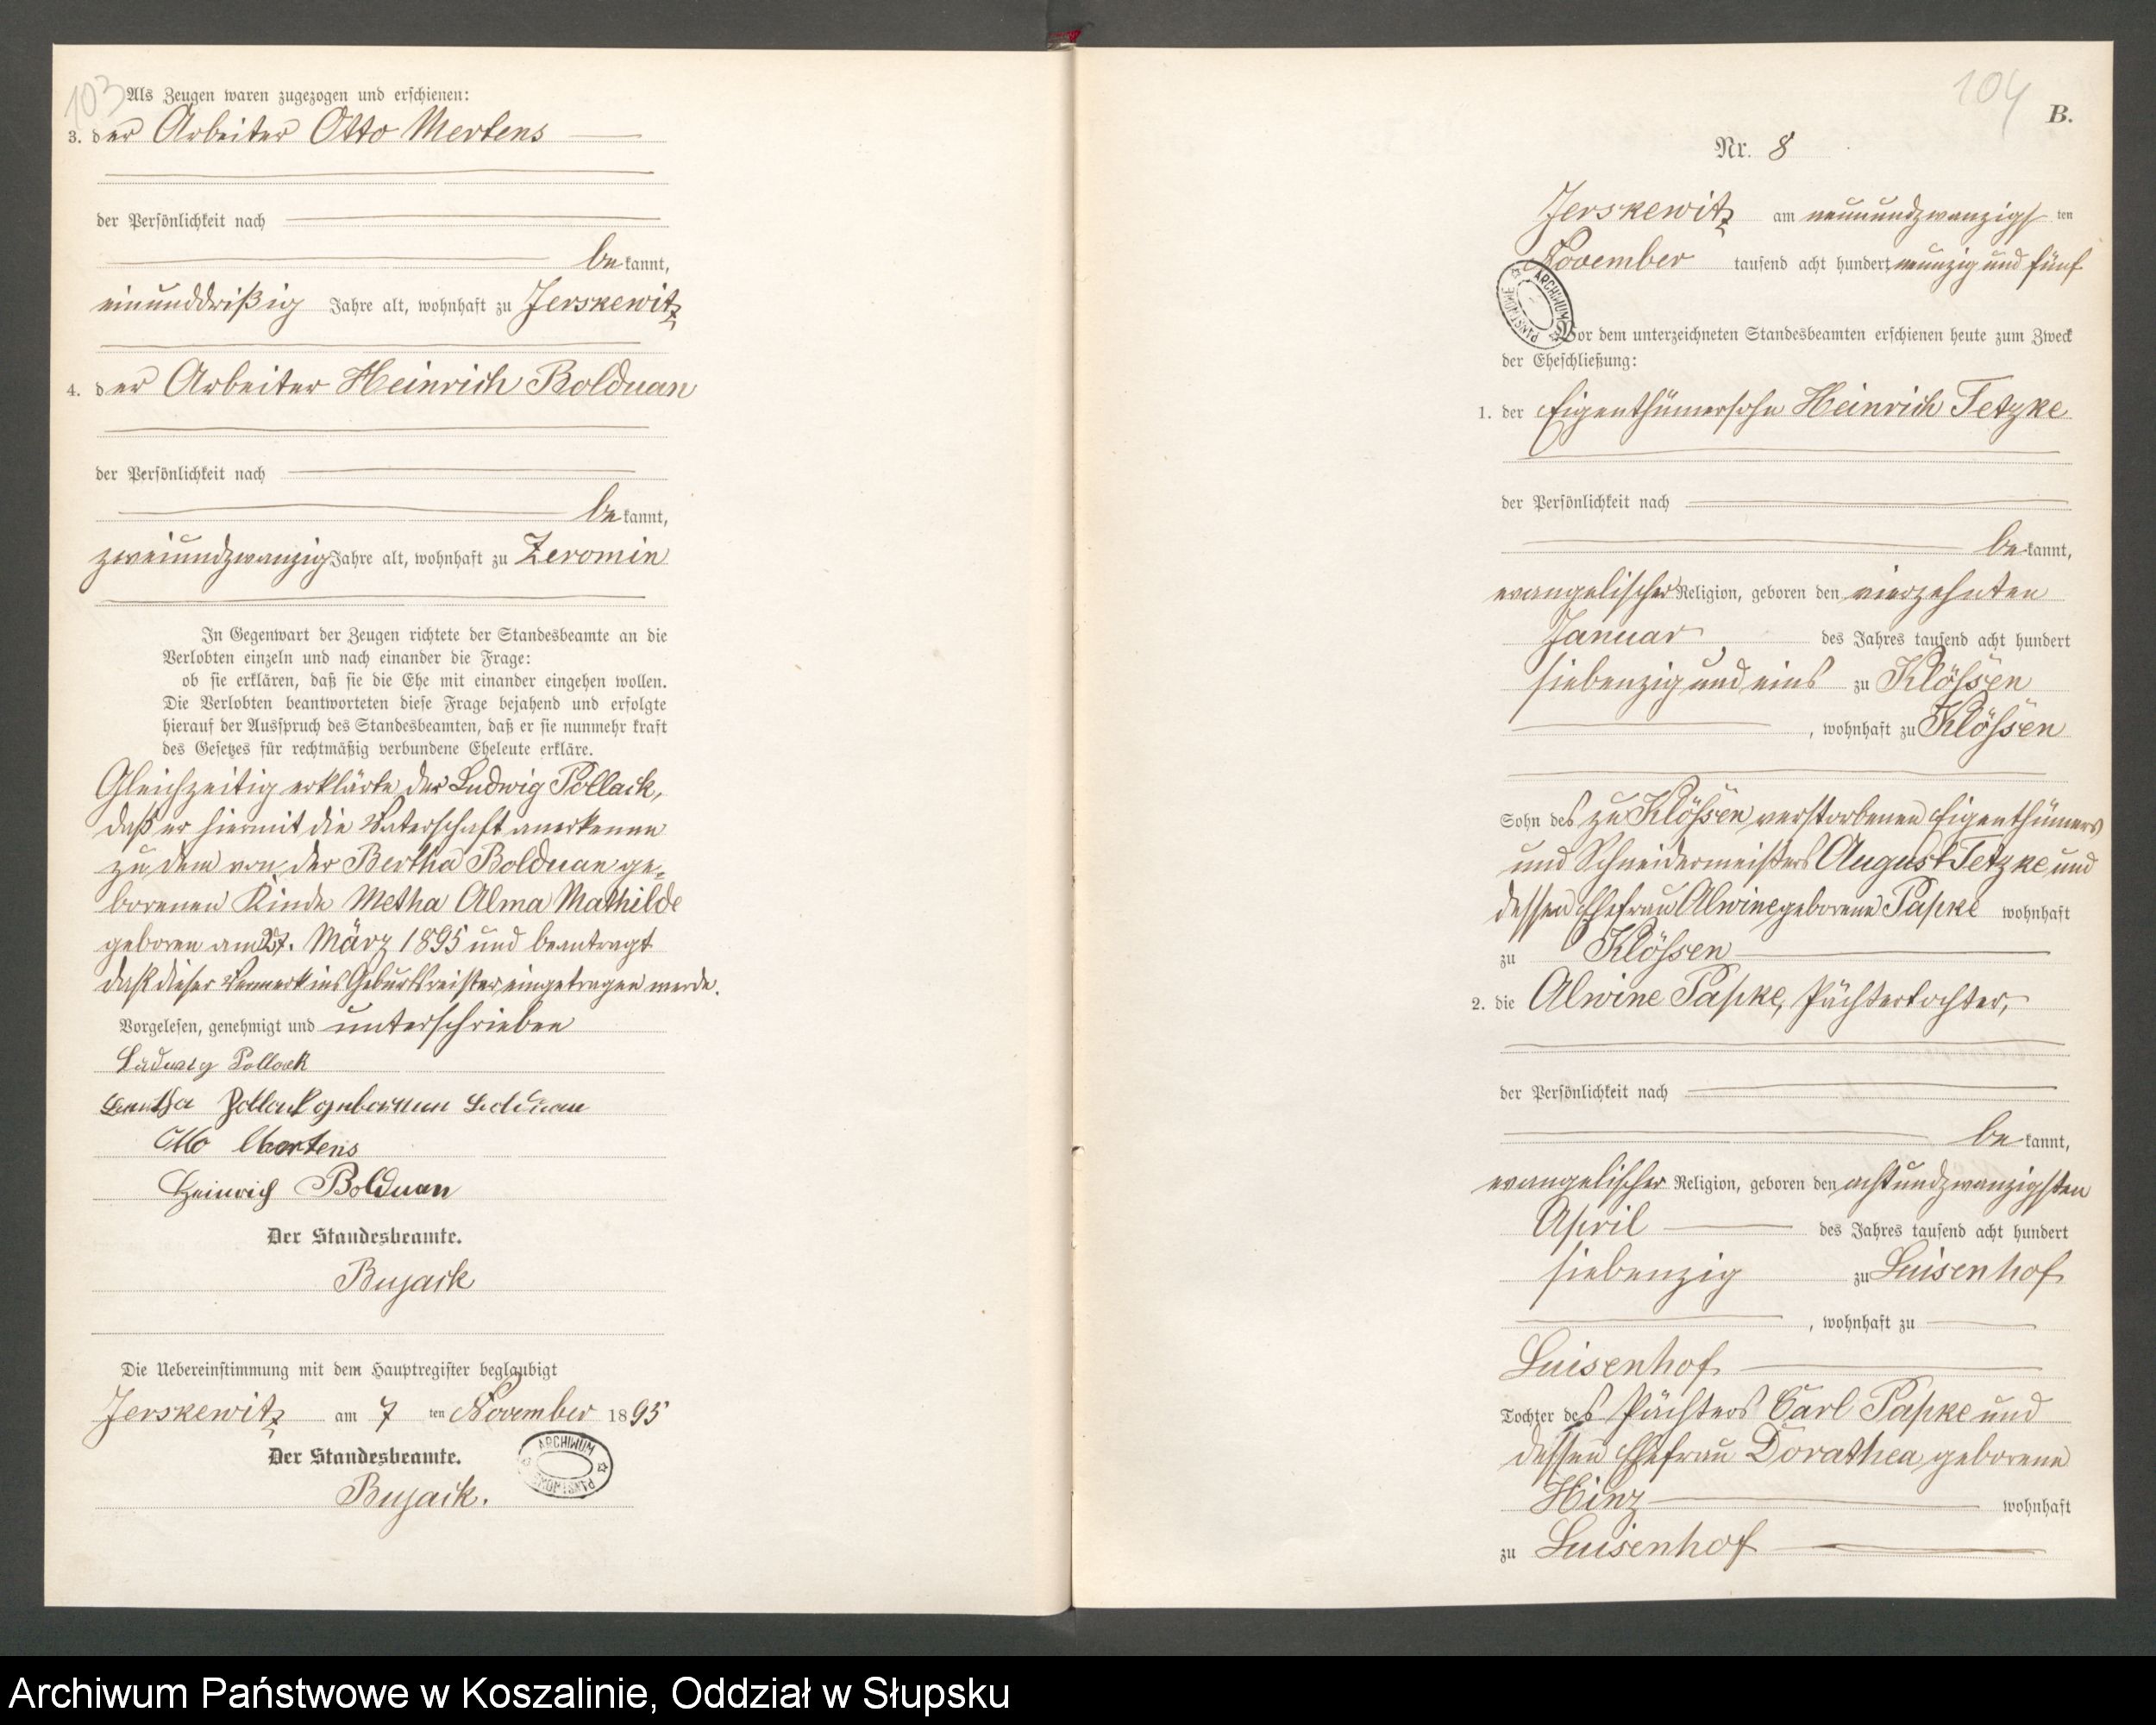 103
Als Zeugen waren zugezogen und erschienen:
3. der Arbeiter Otto Mertens
der Persönlichkeit nach
bekannt,
einunddreißig Jahre alt, wohnhaft zu Jerskewitz
4. der Arbeiter Heinrich Bolduan
der Persönlichkeit nach
bekannt,
zweiundzwanzig Jahre alt, wohnhaft zu Zeromin
In Gegenwart der Zeugen richtete der Standesbeamte an die
Verlobten einzeln und nach einander die Frage:
ob sie erklären, daß sie die Ehe mit einander eingehen wollen.
Die Verlobten beantworteten diese Frage bejahend und erfolgte
hierauf der Ausspruch des Standesbeamten, daß er sie nunmehr kraft
des Gesetzes für rechtmäßig verbundene Eheleute erkläre.
Gleichzeitig erklärte der Ludwig Pollack,
daß er hiermit die Vaterschaft anerkenne
zu dem von der Bertha Bolduan ge-
borenen Kinde Metha Alma Mathilde
geboren am 27. März 1895 und beantragt
daß dieser Vermerk ins Geburtsreister eingetragen werde.
Vorgelesen, genehmigt und unterschrieben
Ludwig Pollack
Bertha Pollack geborene Bolduan
Otto Mertens
Heinrich Bolduan
Der Standesbeamte.
Bujack
Die Uebereinstimmung mit dem Hauptregister beglaubigt
Jerskewitz am 7 ten November 1895
Der Standesbeamte.
Bujack.
ARCHIWUM PAŃSTWOWE
104
B.
Nr. 8
Jerskewitz am neunundzwanzigsten
November tausend acht hundert neunzig und fünf
ARCHIWUM PAŃSTWOWE
Vor dem unterzeichneten Standesbeamten erschienen heute zum Zweck
der Eheschließung:
1. der Eigenthümersohn Heinrich Tetzke
der Persönlichkeit nach
bekannt,
evangelischer Religion, geboren den vierzehnten
Januar des Jahres tausend acht hundert
siebenzig und eins zu Klössen
, wohnhaft zu Klössen
Sohn des zu Klössen verstorbenen Eigenthümers
und Schneidermeisters August Tetzke und
dessen Ehefrau Alwine geborene Papke wohnhaft
zu Klössen
2. die Alwine Papke, Pächtertochter,
der Persönlichkeit nach
bekannt,
evangelischer Religion, geboren den achtundzwanzigsten
April des Jahres tausend acht hundert
siebenzig zu Luisenhof
, wohnhaft zu
Luisenhof
Tochter des Pächters Carl Papke und
dessen Ehefrau Dorathea geborene
Hinz wohnhaft
zu Luisenhof
Archiwum Państwowe w Koszalinie, Oddział w Słupsku